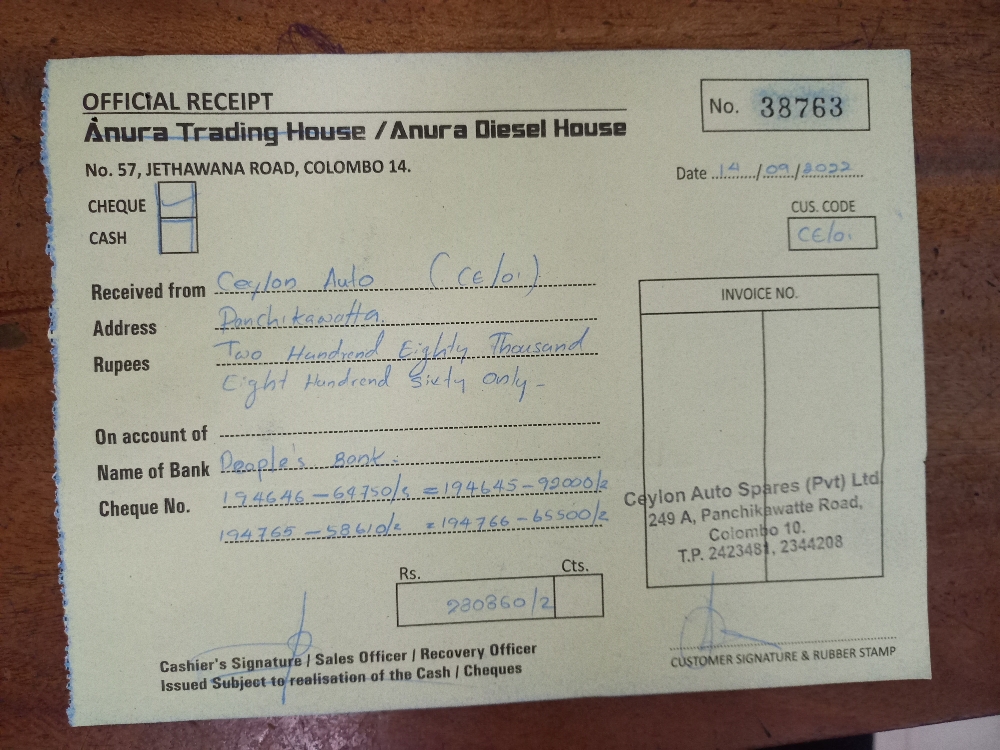 OFFICIAL RECEIPT
Anura Trading House / Anura Diesel House
No. 38763
No. 57, JETHAWANA ROAD, COLOMBO 14.
Date 14/09/2022
CHEQUE
CASH
CUS. CODE
CE/01
Received from Ceylon Auto (CE/01)
Address Panchikawatta.
Rupees Two Hundrend Eighty Thousand
Eight Hundrend Sixty Only -
INVOICE NO.
On account of
Name of Bank People's Bank.
Cheque No. 194646 - 64750/= 194645 - 92000/=
194765 - 58610/= 194766 - 65500/=
Ceylon Auto Spares (Pvt) Ltd.
249 A, Panchikawatte Road,
Colombo 10.
T.P. 2423481, 2344208
Rs. Cts.
280860/=
Cashier's Signature / Sales Officer / Recovery Officer
Issued Subject to realisation of the Cash / Cheques
CUSTOMER SIGNATURE & RUBBER STAMP